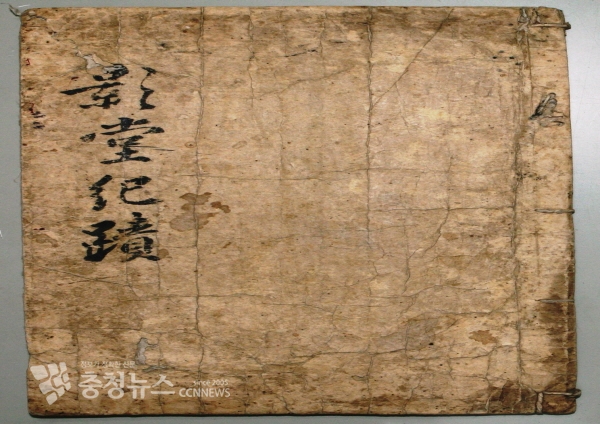 影堂紀蹟
충청뉴스
Since 2005
CCNNEWS